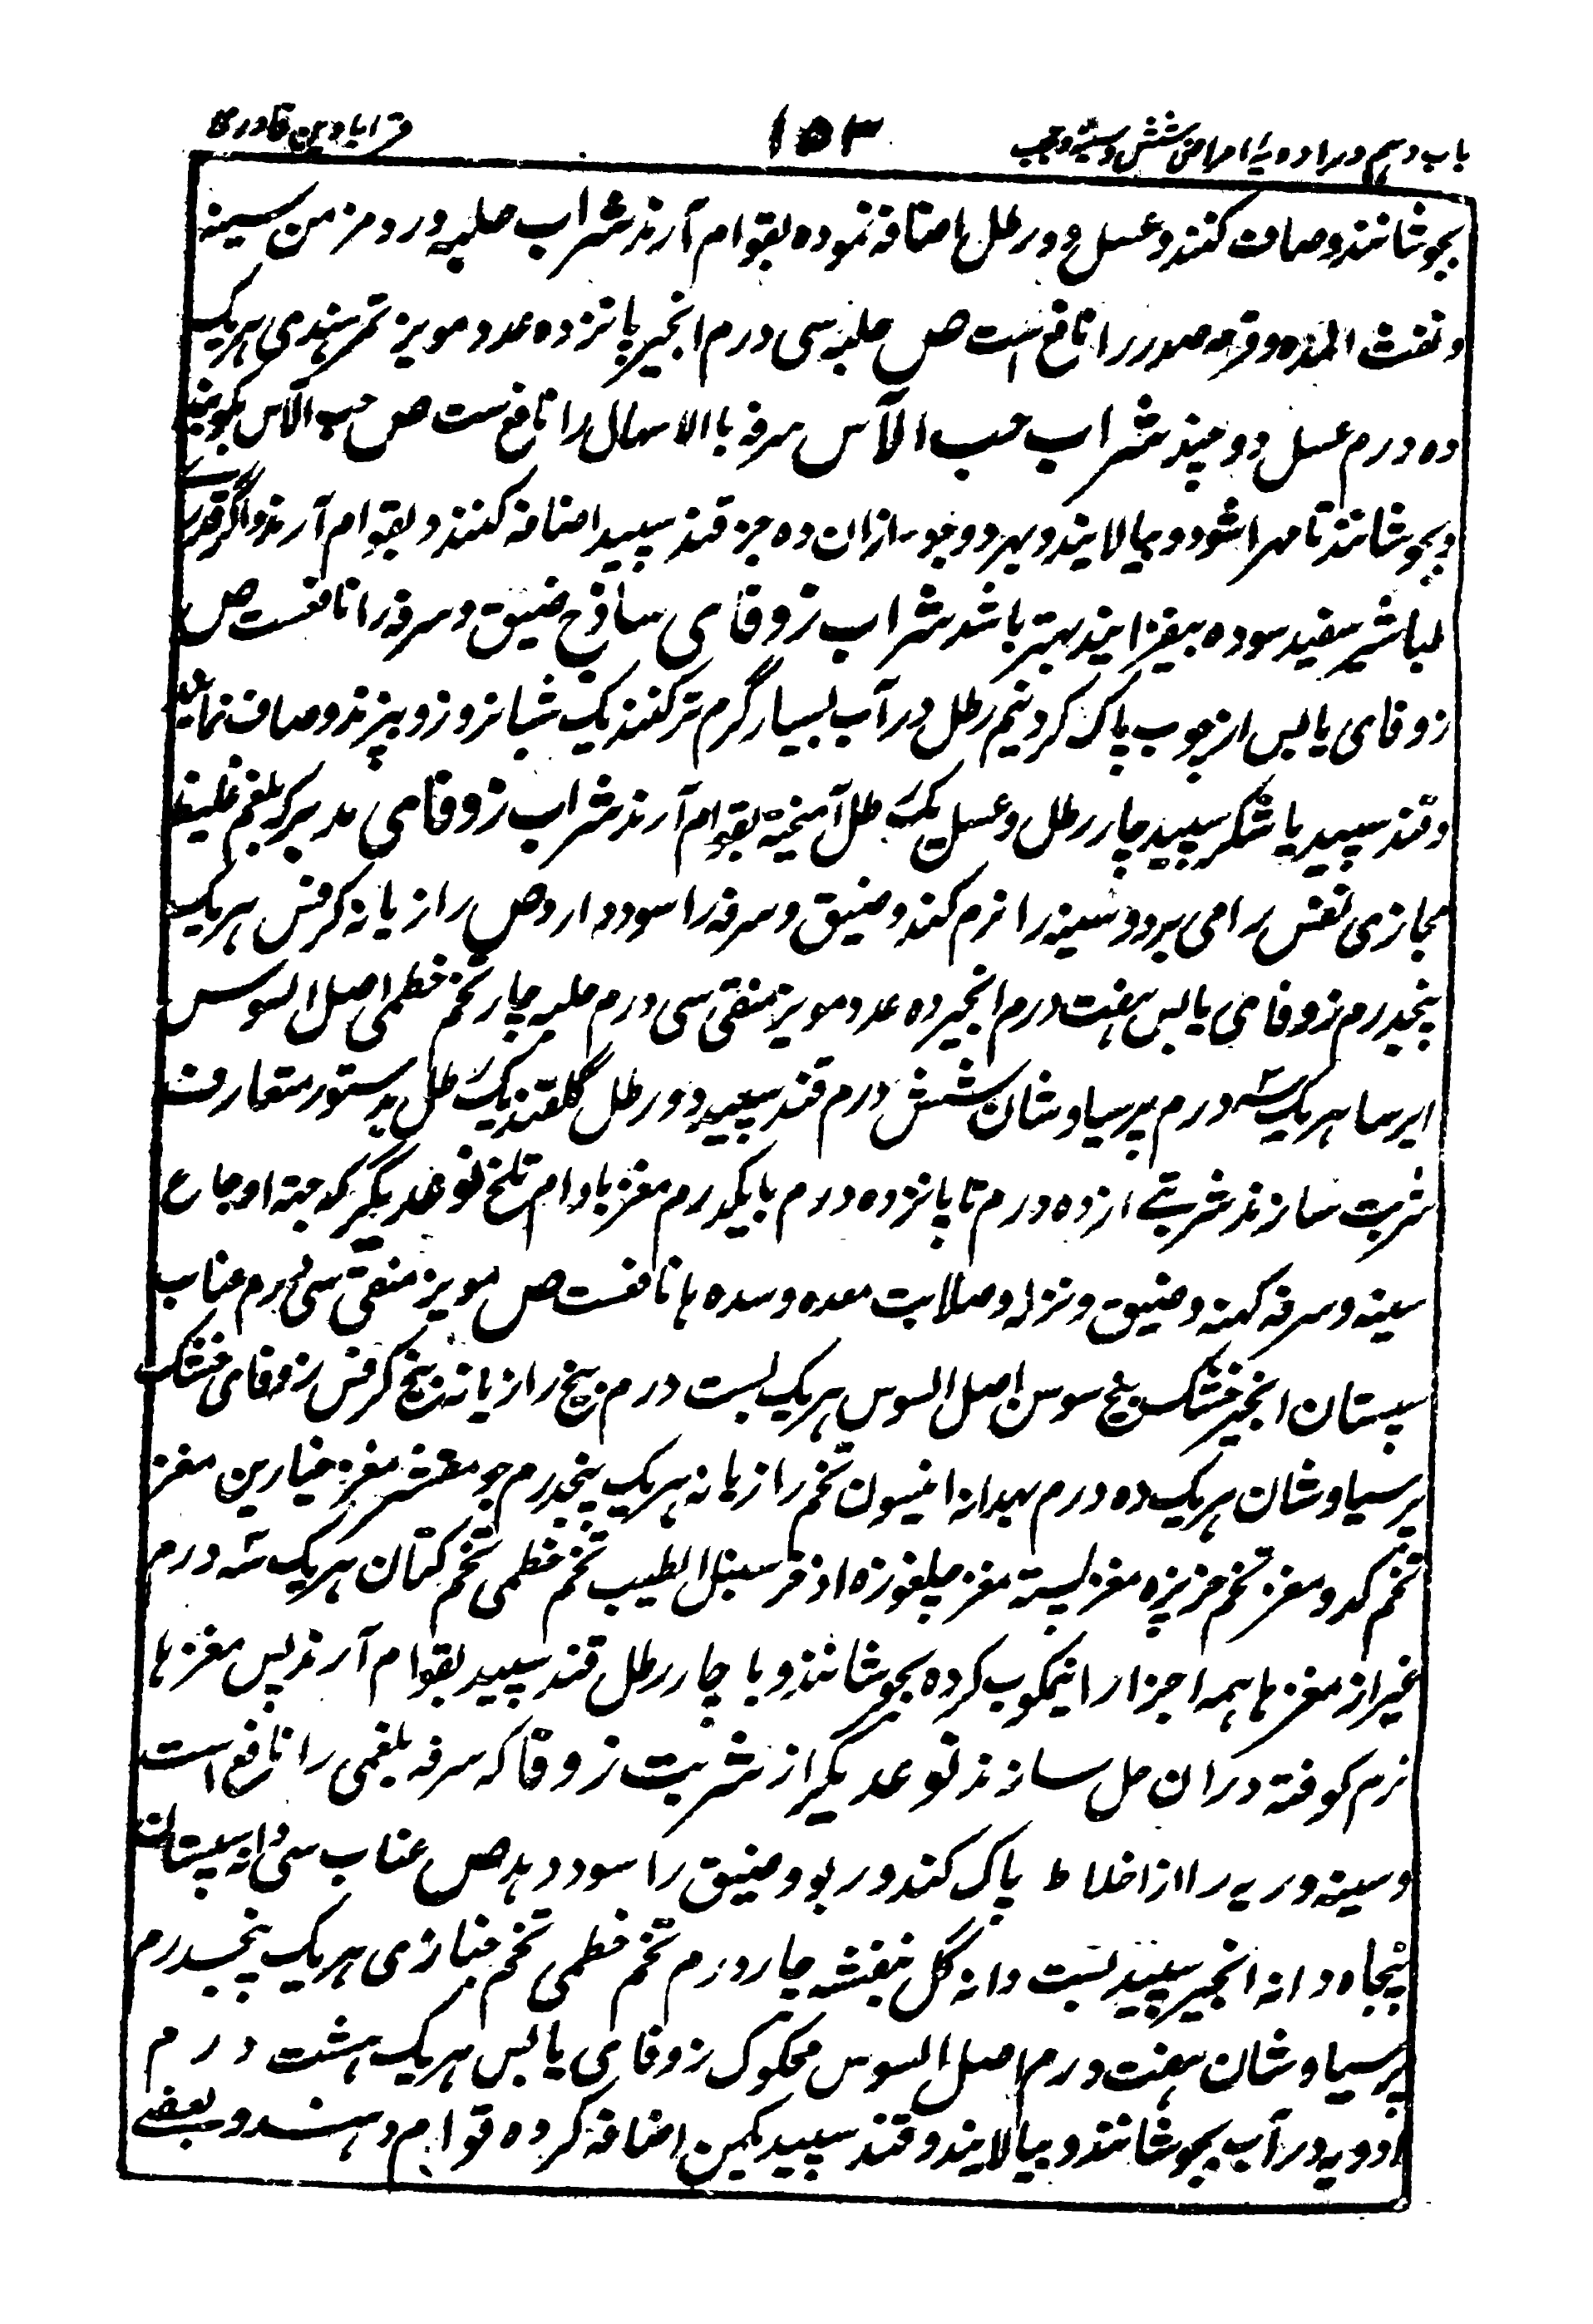 باب دهم در ادویهٔ امراض شش و سینه و جنب
۱۵۳
قرابادین قادری
بجوشانند و صاف کنند و عسل دو رطل اضافه نموده بقوام آرند شراب حلبه درد مزمن سینه
و نفث المده و قرحه صدر را نافع است ص حلبه سی درم انجیر پانزده عدد مویز تمر هندی هر یک
ده درم عسل دو چند شراب حب الآس سرفه با الاسهال را نافع ست ص حب الآس بکوبند
و بجوشانند تا مهرا شود و بپالایند و بهر دو جوء ازان ده جز قند سپید اضافه کنند و بقوام آرند و اگر قدری
طباشیر سفید سوده بیفزایند بهتر باشد شراب زوفای ساذج ضیق و سرفه را نافعست ص
زوفای یابس از چوب پاک کرد نیم رطل در آب بسیار گرم تر کنند یک شبانروز و بپزند و صاف نمایند
و قند سپید یا شکر سپید چار رطل و عسل یک رطل آمیخته بقوام آرند شراب زوفای مدبر که بلغم غلیظ
مجاری نفس را می برد و سینه را نرم کند و ضیق و سرفه را سود دارد ص رازیانه کرفس هر یک
پنجدرم زوفای یابس هفت درم انجیر ده عدد مویز منقی سی درم حلبه چار تخم خطمی اصل السوس
ایرسا هر یک سه درم پرسیاوشان شش درم قند سپید دو رطل گلقند یک رطل بدستور متعارف
شربت سازند شربتے از ده درم تا پانزده درم با یکدرم مغز بادام تلخ نوعدیگر که جهة اوجاع
سینه و سرفه کهنه و ضیق و نزله و صلابت معده و سده ها نافعست ص مویز منقی سی درم عناب
سپستان انجیر خشک بیخ سوسن اصل السوس هر یک بست درم بیخ رازیانه بیخ کرفس زوفای خشک
پرسیاوشان هر یک ده درم بهدانه انیسون تخم رازیانه هر یک پنجدرم جو مقشر مغز خیارین مغز
تخم کدو مغز تخم خرپزه مغز پسته مغز چلغوزه اذخر سنبل الطیب تخم خطمی تخم کتان هر یک سه درم
غیر از مغزها همه اجزا را نیمکوب کرده بجوشانند و با چار رطل قند سپید بقوام آرند پس مغزها
نرم کوفته دران حل سازند نوعدیگر از شربت زوفا که سرفه بلغمی را نافع است
و سینه و ریه را از اخلاط پاک کند و ربو و ضیق را سود دهد ص عناب سی دانه سپستان
پنجاه دانه انجیر سپید بست دانه گل بنفشه چار درم تخم خطمی تخم خبازی هر یک پنجدرم
پرسیاوشان هفت درم اصل السوس محکوک زوفای یابس هر یک هشت درم
ادویه در آب بجوشانند و بپالایند و قند سپید یکمن اضافه کرده قوام دهند و بعضے